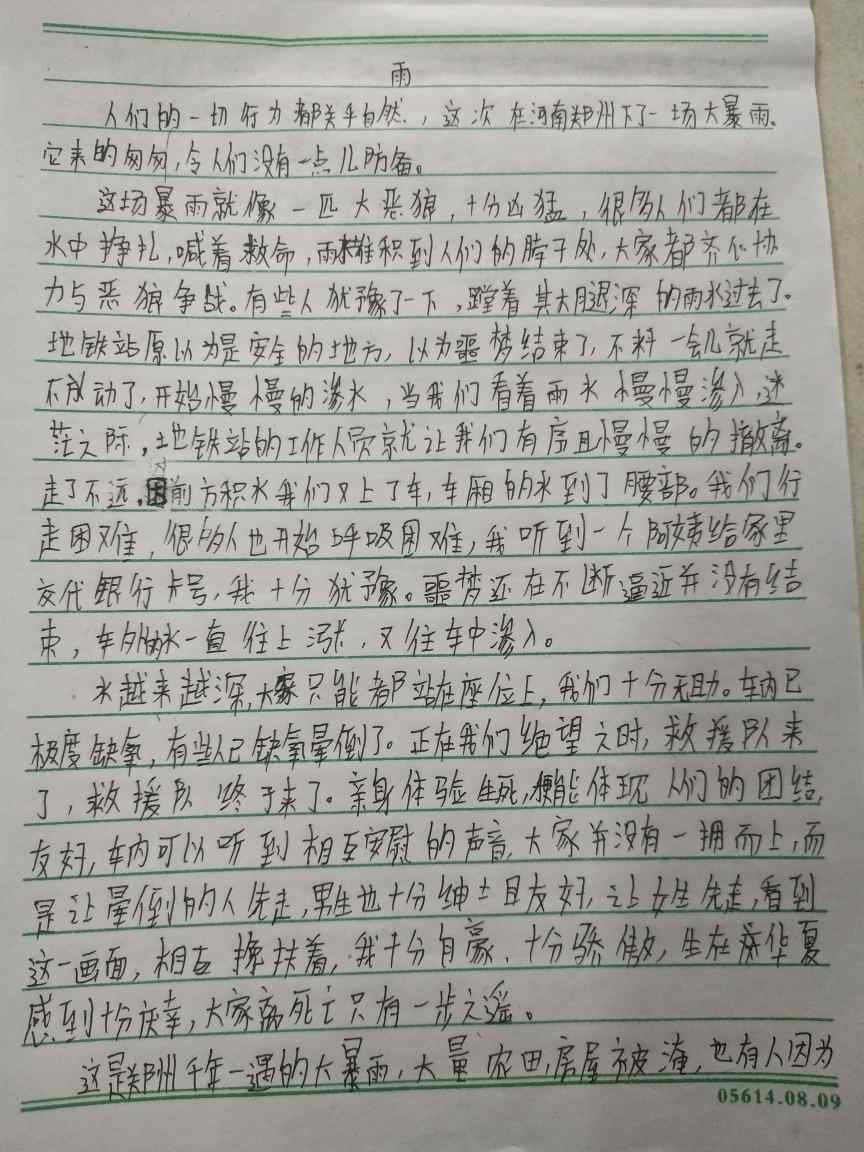 雨
人们的一切行为都关乎自然，这次在河南郑州下了一场大暴雨。
它来的匆匆，令人们没有一点儿防备。
这场暴雨就像一匹大恶狼，十分凶猛，很多人们都在
水中挣扎，喊着救命，雨水堆积到人们的脖子处，大家都齐心协
力与恶狼争战。有些人犹豫了一下，蹚着其大腿深的雨水过去了。
地铁站原以为是安全的地方，以为噩梦结束了，不料一会儿就走
不动了，开始慢慢的渗水，当我们看着雨水慢慢渗入，迷
茫之际，地铁站的工作人员就让我们有序且慢慢的撤离。
走了不远，因前方积水我们又上了车，车厢的水到了腰部。我们行
走困难，很多人也开始呼吸困难，我听到一个阿姨给家里
交代银行卡号，我十分犹豫。噩梦还在不断逼近并没有结
束，车外的水一直往上涨，又往车中渗入。
水越来越深，大家只能都站在座位上，我们十分无助。车内已
极度缺氧，有些人已缺氧晕倒了。正在我们绝望之时，救援队来
了，救援队终于来了。亲身体验生死，便能体现人们的团结，
友好，车内可以听到相互安慰的声音，大家并没有一拥而上，而
是让晕倒的人先走，男生也十分绅士且友好，让女生先走，看到
这一画面，相互搀扶着，我十分自豪，十分骄傲，生在华夏
感到十分庆幸，大家离死亡只有一步之遥。
这是郑州千年一遇的大暴雨，大量农田，房屋被淹，也有人因为
05614.08.09